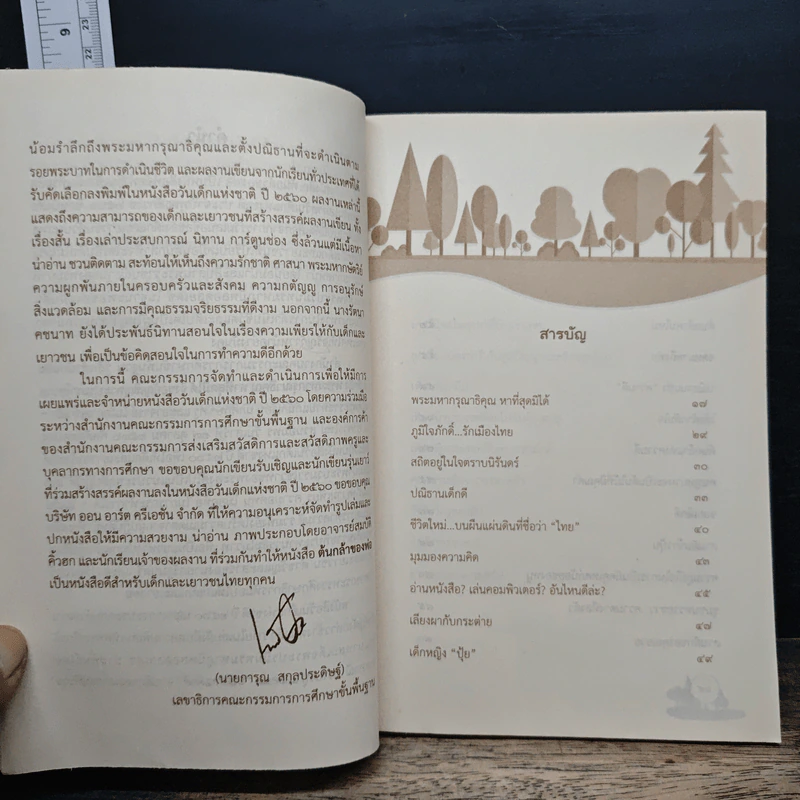 9
23
22
น้อมรำลึกถึงพระมหากรุณาธิคุณและตั้งปณิธานที่จะดำเนินตาม
รอยพระบาทในการดำเนินชีวิต และผลงานเขียนจากนักเรียนทั่วประเทศที่ได้
รับคัดเลือกลงพิมพ์ในหนังสือวันเด็กแห่งชาติ ปี ๒๕๖๐ ผลงานเหล่านี้
แสดงถึงความสามารถของเด็กและเยาวชนที่สร้างสรรค์ผลงานเขียน ทั้ง
เรื่องสั้น เรื่องเล่าประสบการณ์ นิทาน การ์ตูนช่อง ซึ่งล้วนแต่มีเนื้อหา
น่าอ่าน ชวนติดตาม สะท้อนให้เห็นถึงความรักชาติ ศาสนา พระมหากษัตริย์
ความผูกพันภายในครอบครัวและสังคม ความกตัญญู การอนุรักษ์
สิ่งแวดล้อม และการมีคุณธรรมจริยธรรมที่ดีงาม นอกจากนี้ นางรัตนา
คชนาท ยังได้ประพันธ์นิทานสอนใจในเรื่องความเพียรให้กับเด็กและ
เยาวชน เพื่อเป็นข้อคิดสอนใจในการทำความดีอีกด้วย
ในการนี้ คณะกรรมการจัดทำและดำเนินการเพื่อให้มีการ
เผยแพร่และจำหน่ายหนังสือวันเด็กแห่งชาติ ปี ๒๕๖๐ โดยความร่วมมือ
ระหว่างสำนักงานคณะกรรมการการศึกษาขั้นพื้นฐาน และองค์การค้า
ของสำนักงานคณะกรรมการส่งเสริมสวัสดิการและสวัสดิภาพครูและ
บุคลากรทางการศึกษา ขอขอบคุณนักเขียนรับเชิญและนักเขียนรุ่นเยาว์
ที่ร่วมสร้างสรรค์ผลงานลงในหนังสือวันเด็กแห่งชาติ ปี ๒๕๖๐ ขอขอบคุณ
บริษัท ออน อาร์ต ครีเอชั่น จำกัด ที่ให้ความอนุเคราะห์จัดทำรูปเล่มและ
ปกหนังสือให้มีความสวยงาม น่าอ่าน ภาพประกอบโดยอาจารย์สมบัติ
คิ้วฮก และนักเรียนเจ้าของผลงาน ที่ร่วมกันทำให้หนังสือ ต้นกล้าของพ่อ
เป็นหนังสือดีสำหรับเด็กและเยาวชนไทยทุกคน
(นายการุณ สกุลประดิษฐ์)
เลขาธิการคณะกรรมการการศึกษาขั้นพื้นฐาน
สารบัญ
พระมหากรุณาธิคุณ หาที่สุดมิได้ ๑๗
ภูมิใจภักดิ์...รักเมืองไทย ๒๙
สถิตอยู่ในใจตราบนิรันดร์ ๓๐
ปณิธานเด็กดี ๓๓
ชีวิตใหม่...บนผืนแผ่นดินที่ชื่อว่า "ไทย" ๔๐
มุมมองความคิด ๔๓
อ่านหนังสือ? เล่นคอมพิวเตอร์? อันไหนดีล่ะ? ๔๕
เลียงผากับกระต่าย ๔๗
เด็กหญิง "ปุ้ย" ๔๙